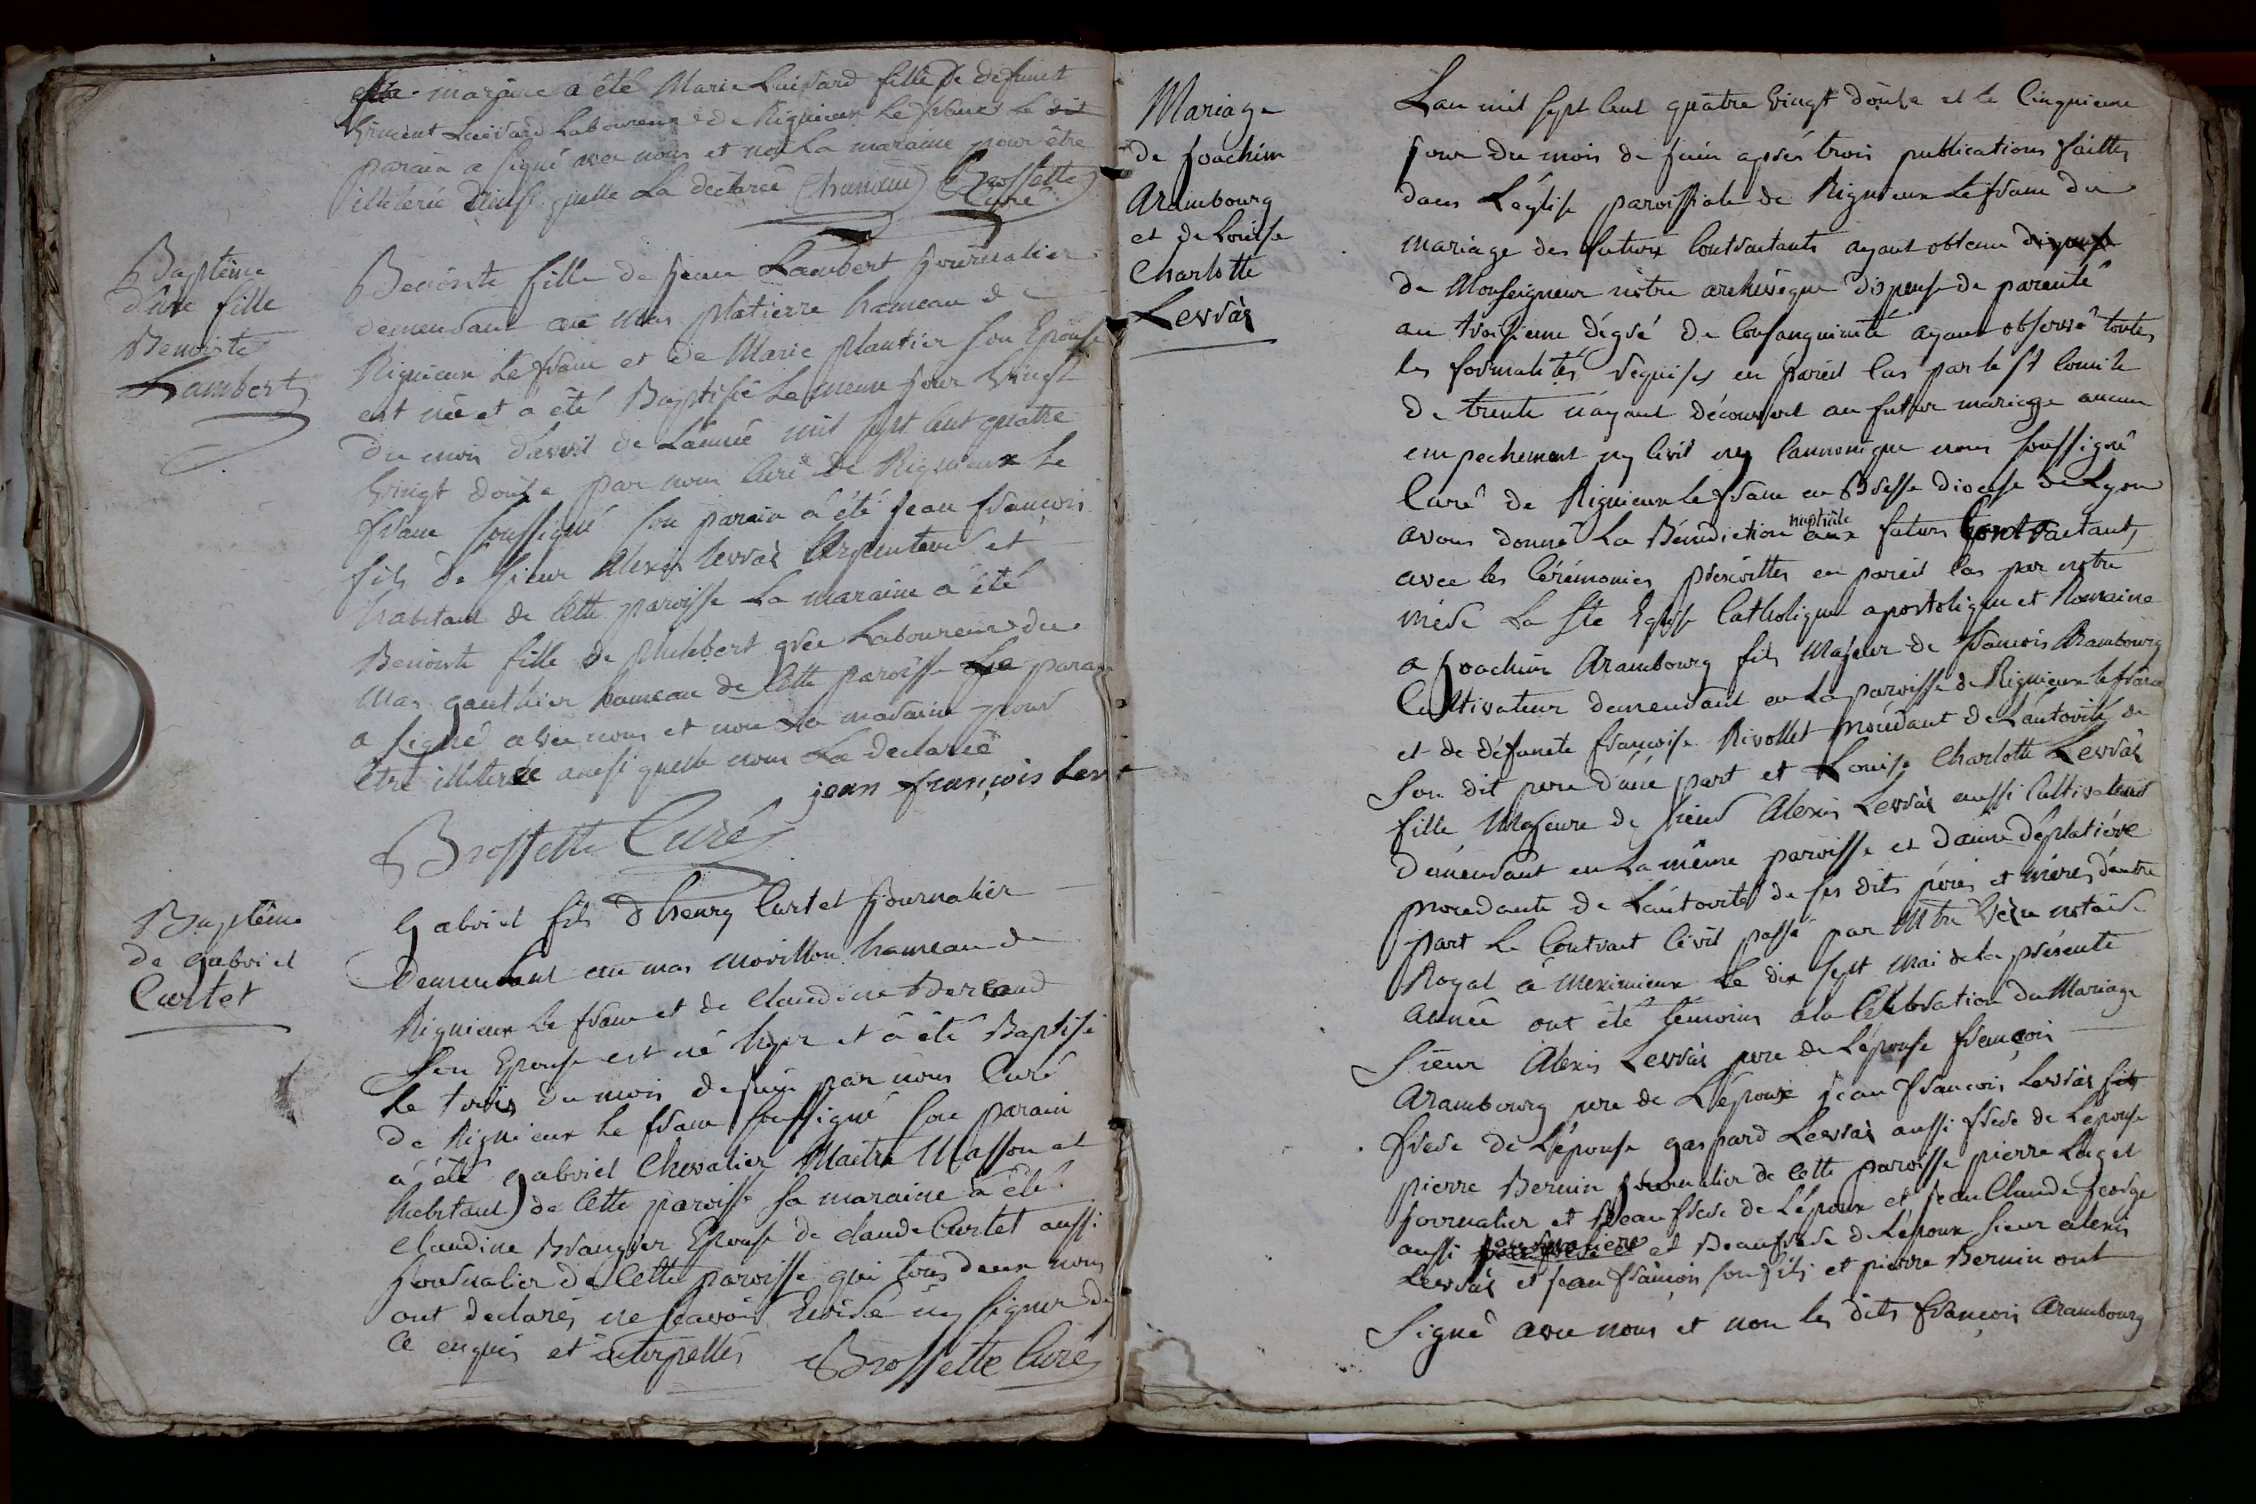 maraine a été Marie Luissard fille de defunct
Vincent Luissard Laboureur de Rignieux le franc Le dit
parain a signé avec nous et non La maraine pour être
illiterée ainsi quelle La declarée Brossette
Curé
Baptême
d'une fille
Benoiste
Lambert
Benoiste fille de jean Lambert journalier
demeurant au mas platierre hameau de
Rignieux Le franc et de Marie plantier son Epouse
est née et a été Baptisée Le meme jour vingt
du mois d'avril de L'année mil sept cent quatre
vingt douze par nous Curé de Rignieux Le
franc soussigné son parain a été jean françois
fils de sieur Alexis Levrat Arpenteur et
habitant de Cette paroisse La maraine a été
Benoiste fille de philibert grée Laboureur du
Mas gauthier hameau de Cette paroisse Le parain
a signé avec nous et non La maraine pour
être illiterée ainsi quelle nous La declarée
jean françois Lev
Brossette Curé
Baptême
de gabriel
Curtet
gabriel fils d'henry Curtet journalier
demeurant au mas morillon hameau de
Rignieux Le franc et de Claudine Berland
son Epouse est né hyer et a été Baptisé
Le trois du mois de juin par nous Curé
de Rignieux Le franc soussigné son parain
a été gabriel Chevalier Maitre Masson et
habitant de Cette paroisse sa maraine a été
Claudine Brangier Epouse de claude Curtet aussi
journalier de Cette paroisse qui tous deux nous
ont declarés ne scavoir Ecrire ny signer de
Ce enquis et interpellés Brossette Curé
Mariage
de joachim
Arambourg
et de Louise
Charlotte
Levrat
Lan mil sept cent quatre vingt douze et le Cinquieme
jour du mois de juin après trois publications faittes
dans L'église paroissiale de Rignieux Le franc du
mariage des futurs Contractants ayant obtenu dispense
de Monseigneur nôtre archevêque dispense de parenté
au troisieme dégré de Consanguinité ayant observé toutes
les formalités requises en pareil Cas par le st Concile
de trente n'ayant découvert au futur mariage aucun
empechement ny Civil ny Cannonique nous soussigné
Curé de Rignieux le franc en Bresse diocese de Lyon
avons donné La Bénédiction nuptiale aux futurs Contractants
avec les Cérémonies prescrittes en pareil Cas par notre
mére La Ste Eglise Catholique apostolique et Romaine
a joachim Arambourg fils Majeur de françois Arambourg
Cultivateur demeurant en La paroisse de Rignieux le franc
et de défuncte françoise Rivollet procédant de L'autorité de
son dit pere d'une part et Louise Charlotte Levrat
fille Majeure de sieur Alexis Levrat aussi Cultivateur
demeurant en La même paroisse et
procédante de L'autorité de ses dits pére et mére d'autre
part Le Contract Civil passé par Mtre notaire
Royal à Meximieux Le dix sept Mai de la présente
année ont été témoins à la Célébration du Mariage
Sieur Alexis Levrat pere de L'épouse françois
Arambourg pere de L'époux jean françois Levrat fils
frere de L'épouse gaspard Levrat aussi frere de L'epouse
pierre Bernin journalier de Cette paroisse pierre Laget
journalier et Beau frere de L'époux et jean Claude george
aussi journalier et Beaufrere de L'époux sieur alexis
Levrat et jean françois son fils et pierre Bernin ont
Signé avec nous et non les dits françois Arambourg